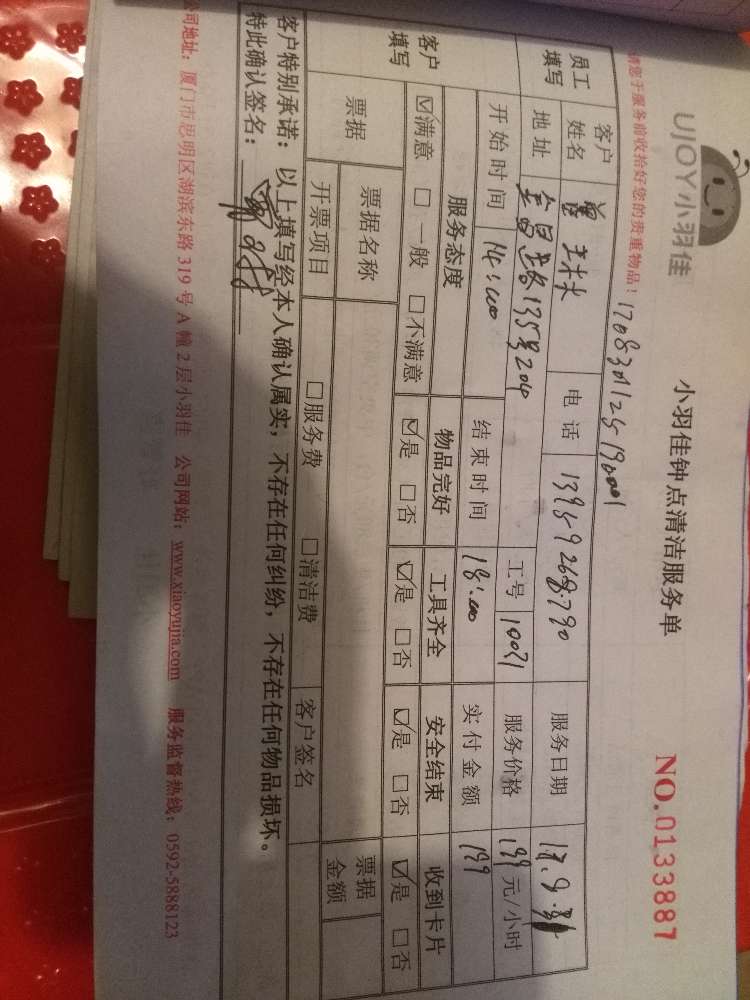 UJOY小羽佳
小羽佳钟点清洁服务单
NO.0133887
请您于服务前收拾好您的贵重物品！
员工填写
客户姓名
电话 13959268790
服务日期
地址
135号204
工号 10071
服务价格 199 元/小时
开始时间 14:00
结束时间 18:00
实付金额 199
客户填写
服务态度 物品完好 工具齐全 安全结束 收到卡片
☑满意 □一般 □不满意 ☑是 □否 ☑是 □否 ☑是 □否 ☑是 □否
票据
票据名称
票据金额
开票项目 □服务费 □清洁费
客户签名
客户特别承诺：以上填写经本人确认属实，不存在任何纠纷，不存在任何物品损坏。
特此确认签名：
公司地址：厦门市思明区湖滨东路319号A幢2层小羽佳 公司网站：www.xiaoyujia.com 服务监督热线：0592-5888123